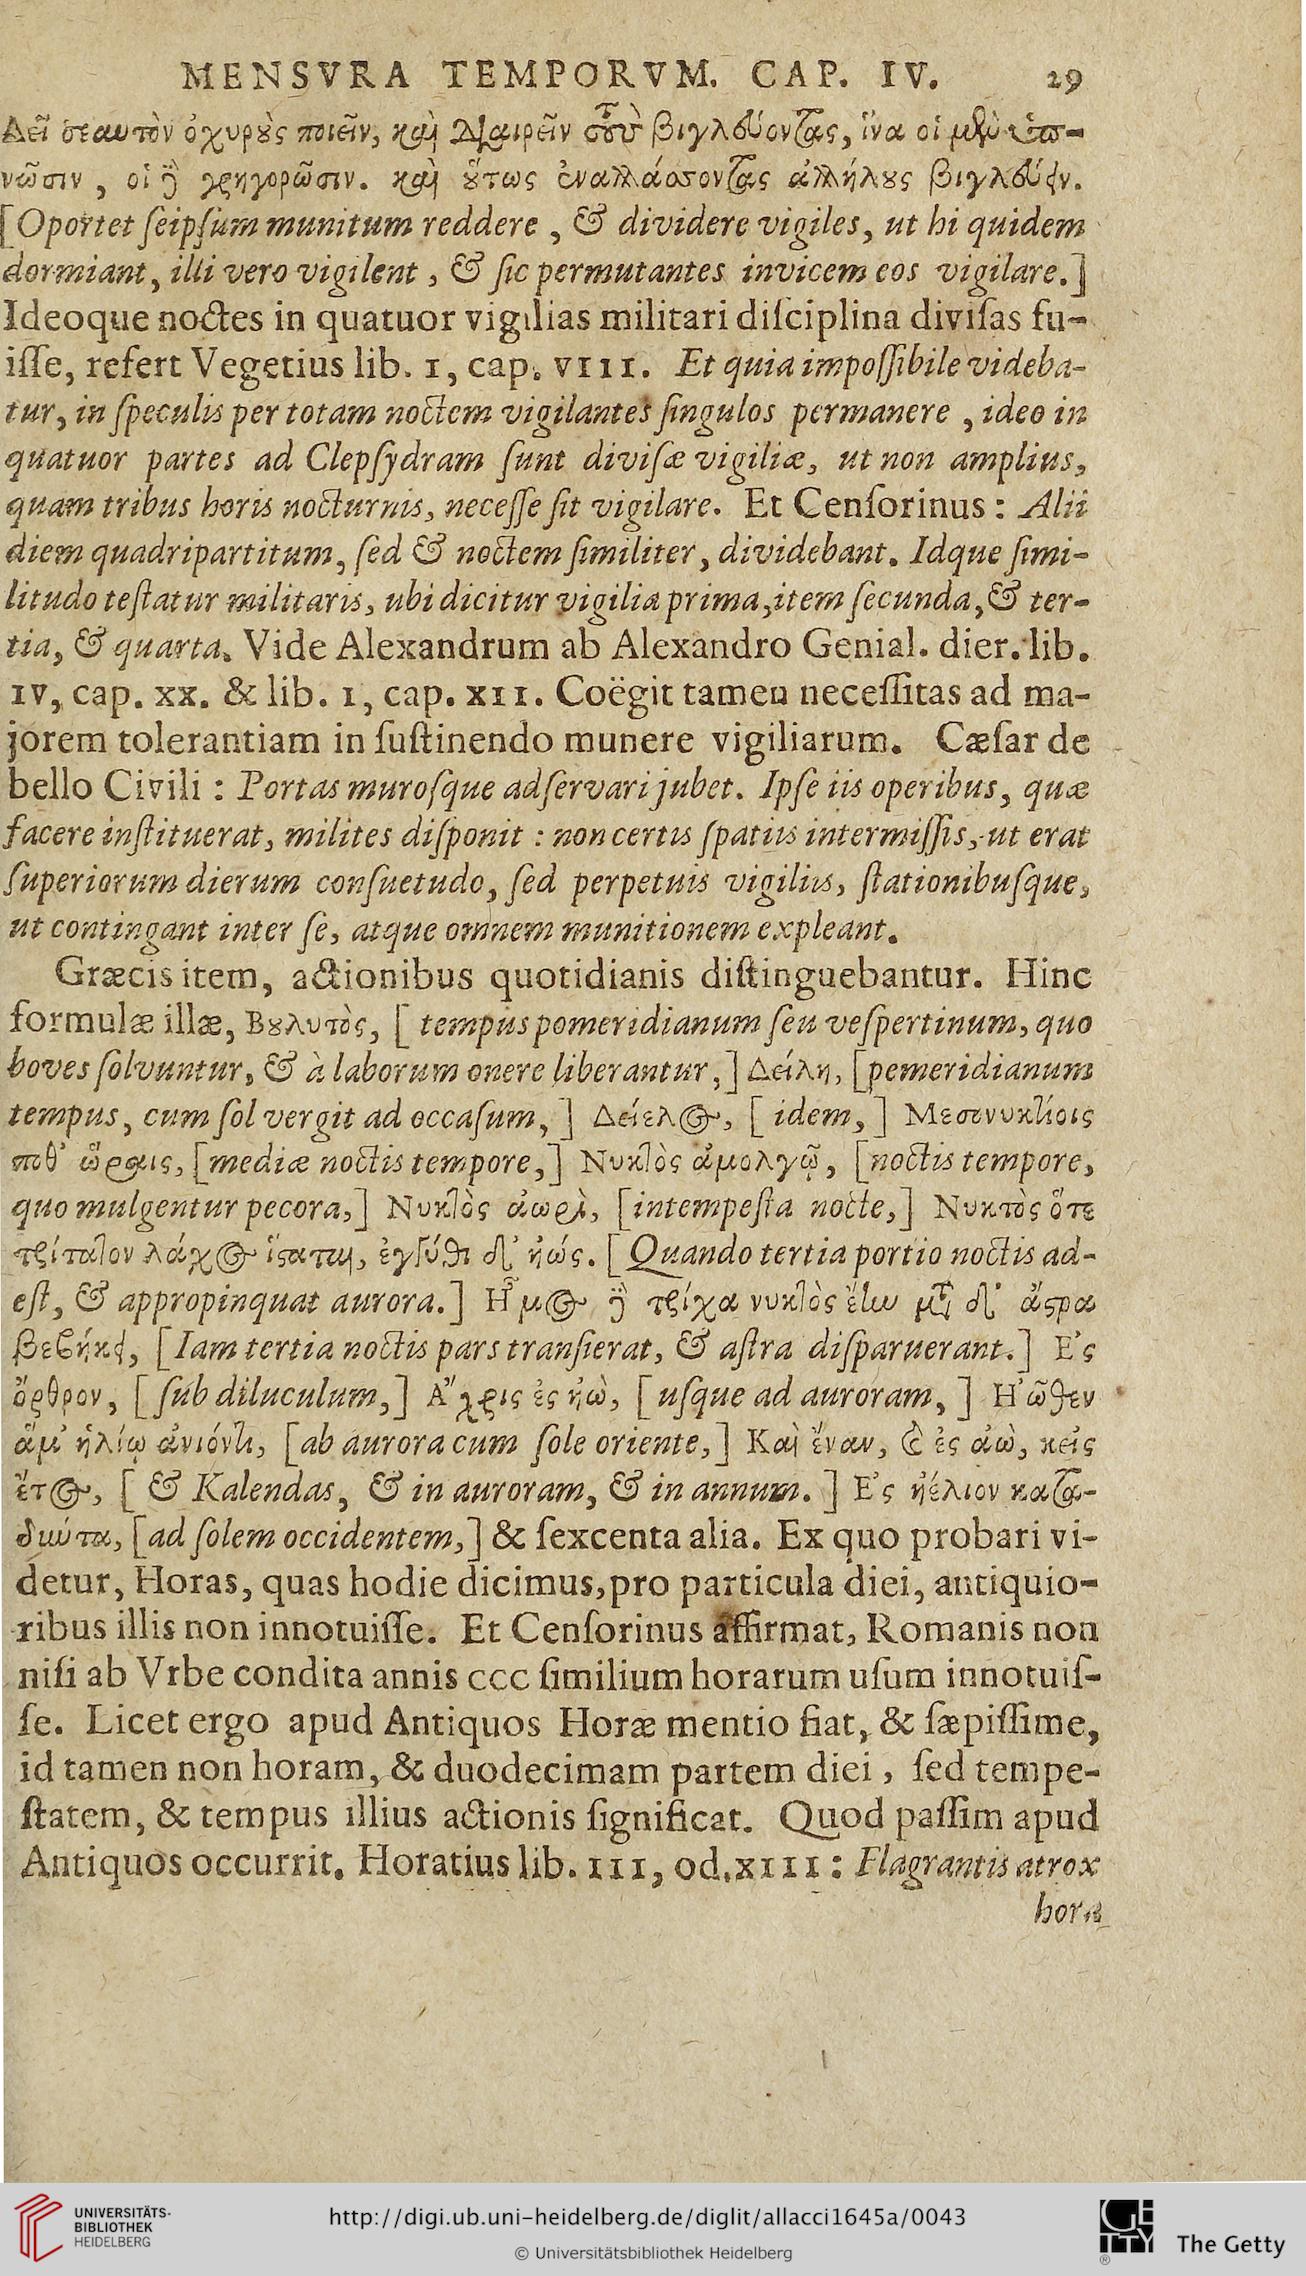 MENSVRA TEMPORVM. CAP. IV. 29
Δεῖ σεαυτὸν ὀχυροὺς ποιεῖν, καὶ διαιρεῖν τοὺς βιγλεύοντας, ἵνα οἱ μὲν ὑπ-
νῶσιν, οἱ δὲ γρηγορῶσιν. καὶ οὕτως ἐναλλάσσοντας ἀλλήλους βιγλεύειν.
[Oportet ſeipſum munitum reddere, & dividere vigiles, ut hi quidem
dormiant, illi vero vigilent, & ſic permutantes invicem eos vigilare.]
Ideoque noctes in quatuor vigilias militari diſciplina diviſas fu-
iſſe, refert Vegetius lib. I, cap. VIII. Et quia impoſſibile videba-
tur, in ſpeculis per totam noctem vigilantes ſingulos permanere, ideo in
quatuor partes ad Clepſydram ſunt diviſæ vigiliæ, ut non amplius,
quam tribus horis nocturnis, neceſſe ſit vigilare. Et Cenſorinus: Alii
diem quadripartitum, ſed & noctem ſimiliter, dividebant. Idque ſimi-
litudo teſtatur militaris, ubi dicitur vigilia prima, item ſecunda, & ter-
tia, & quarta. Vide Alexandrum ab Alexandro Genial. dier. lib.
IV, cap. XX. & lib. I, cap. XII. Coëgit tamen neceſſitas ad ma-
jorem tolerantiam in ſuſtinendo munere vigiliarum. Cæſar de
bello Civili: Portas muroſque adſervari jubet. Ipſe iis operibus, quæ
facere inſtituerat, milites diſponit: non certis ſpatiis intermiſſis, ut erat
ſuperiorum dierum conſuetudo, ſed perpetuis vigiliis, ſtationibuſque,
ut contingant inter ſe, atque omnem munitionem expleant.
Græcis item, actionibus quotidianis diſtinguebantur. Hinc
formulæ illæ, Βουλυτὸς, [tempus pomeridianum ſeu veſpertinum, quo
boves ſolvuntur, & à laborum onere liberantur,] Δείλη, [pemeridianum
tempus, cum ſol vergit ad occaſum,] Δείελος, [idem,] Μεσονυκτίοις
ποθ' ὥραις, [mediæ noctis tempore,] Νυκτὸς ἀμολγῷ, [noctis tempore,
quo mulgentur pecora,] Νυκτὸς ἀωρὶ, [intempeſta nocte,] Νυκτὸς ὅτε
τρίτατον λάχος ἵσταται, ἐγγύθι δ' ἠώς. [Quando tertia portio noctis ad-
eſt, & appropinquat aurora.] Ἦμος δὲ τρίχα νυκτὸς ἔην μετὰ δ' ἄστρα
βεβήκει, [Iam tertia noctis pars tranſierat, & aſtra diſparuerant.] Ἐς
ὄρθρον, [ſub diluculum,] Ἄχρις ἐς ἠὼ, [uſque ad auroram,] Ἠῶθεν
ἅμ' ἡλίῳ ἀνιόντι, [ab aurora cum ſole oriente,] Καὶ ἔναν, καὶ ἐς ἀὼ, κεἰς
ἔτος, [& Kalendas, & in auroram, & in annum.] Ἐς ἠέλιον κατα-
δύντα, [ad ſolem occidentem,] & ſexcenta alia. Ex quo probari vi-
detur, Horas, quas hodie dicimus, pro particula diei, antiquio-
ribus illis non innotuiſſe. Et Cenſorinus affirmat, Romanis non
niſi ab Vrbe condita annis CCC ſimilium horarum uſum innotuiſ-
ſe. Licet ergo apud Antiquos Horæ mentio fiat, & ſæpiſſime,
id tamen non horam, & duodecimam partem diei, ſed tempe-
ſtatem, & tempus illius actionis ſignificat. Quod paſſim apud
Antiquos occurrit. Horatius lib. III, od. XIII: Flagrantis atrox
hora
UNIVERSITÄTS-
BIBLIOTHEK
HEIDELBERG
http://digi.ub.uni-heidelberg.de/diglit/allacci1645a/0043
© Universitätsbibliothek Heidelberg
The Getty